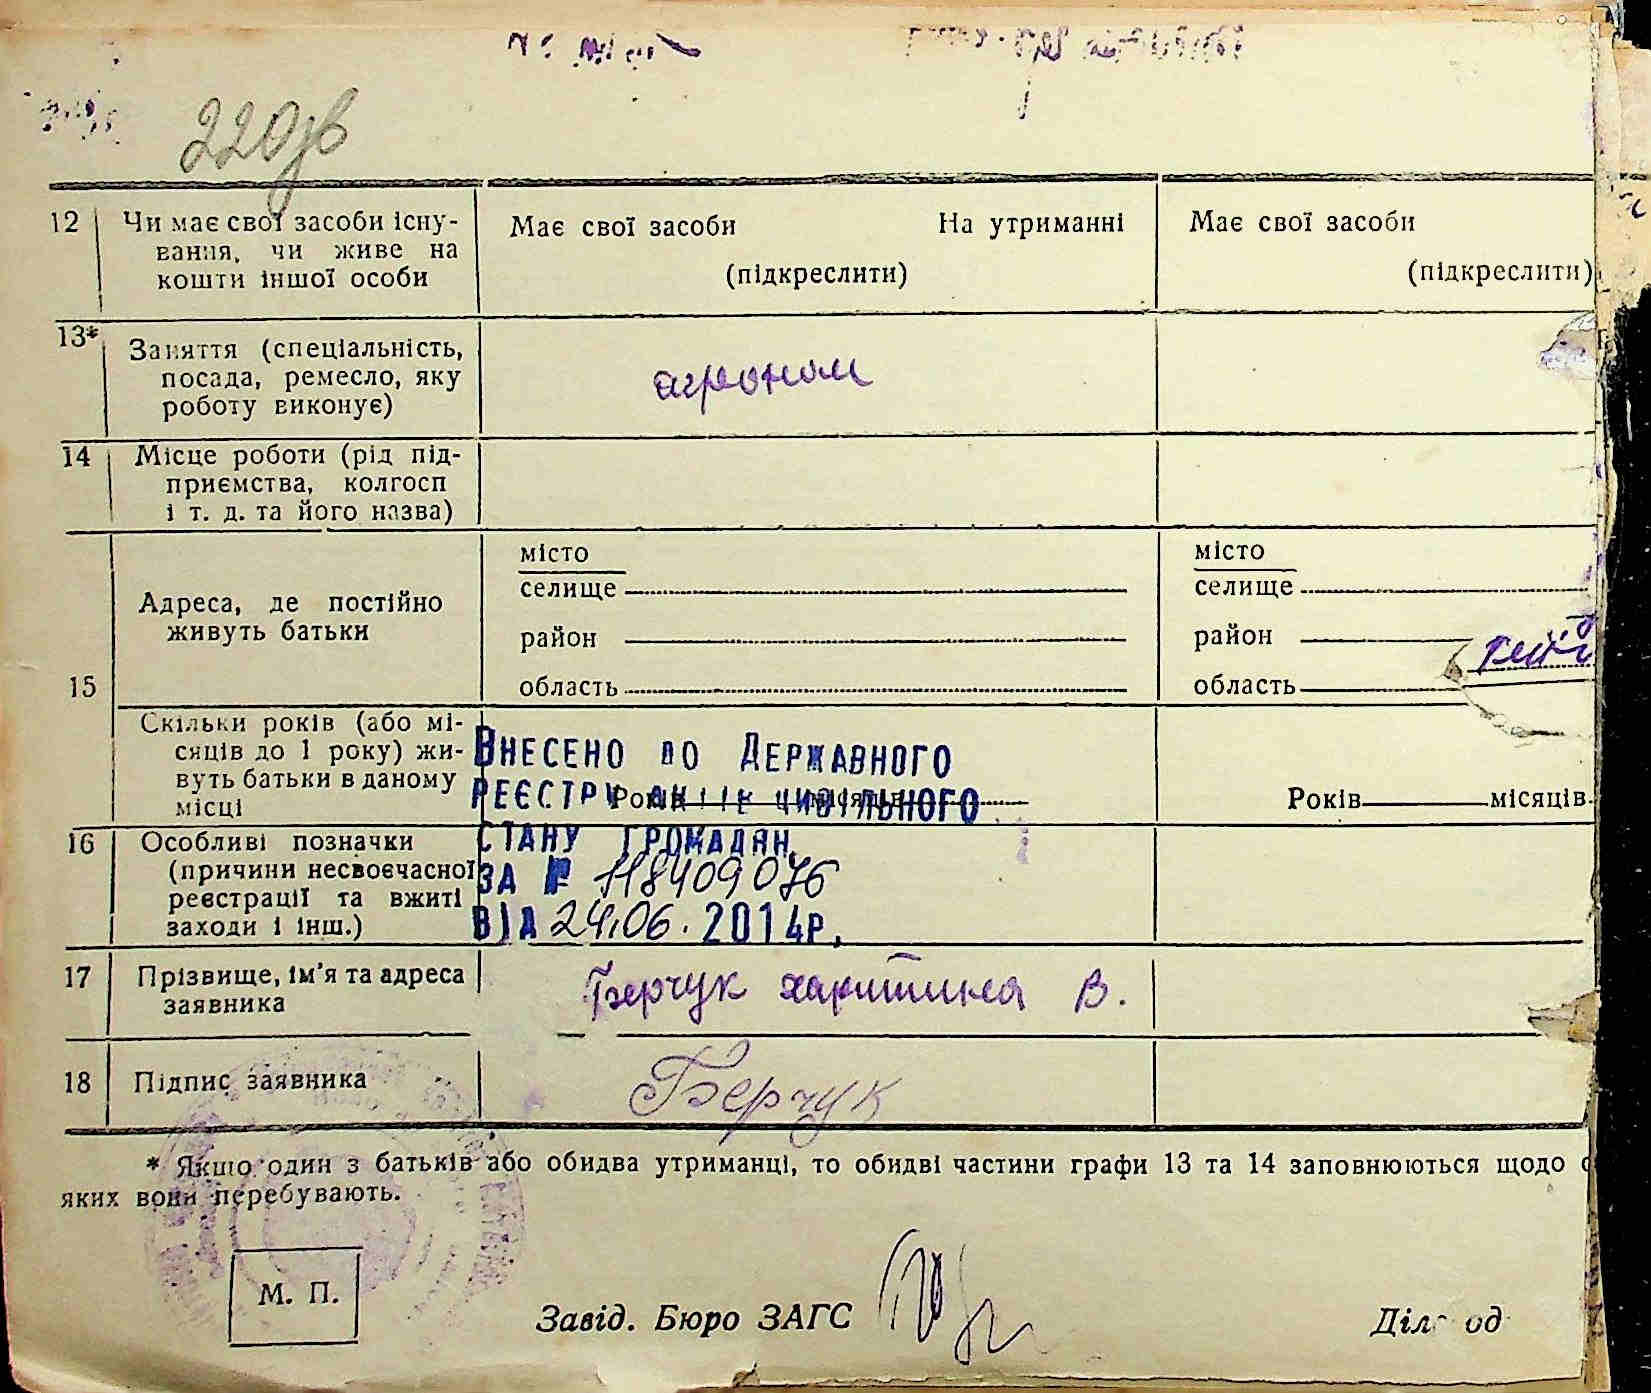 220зв
12 Чи має свої засоби існу- Має свої засоби На утриманні Має свої засоби
вання, чи живе на
кошти іншої особи (підкреслити) (підкреслити)
13* Заняття (спеціальність,
посада, ремесло, яку агроном
роботу виконує)
14 Місце роботи (рід під-
приємства, колгосп
і т. д. та його назва)
місто місто
селище селище
Адреса, де постійно
живуть батьки район район
15 область область
Скільки років (або мі-
сяців до 1 року) жи- ВНЕСЕНО ДО ДЕРЖАВНОГО
вуть батьки в даному РЕЄСТРУ АКТІВ ЦИВІЛЬНОГО
місці Років місяців Років місяців
16 Особливі позначки СТАНУ ГРОМАДЯН
(причини несвоєчасної ЗА № 118409076
реєстрації та вжиті
заходи і інш.) ВІД 24.06. 2014р.
17 Прізвище, ім'я та адреса Берчук Харитина В.
заявника
18 Підпис заявника Берчук
* Якщо один з батьків або обидва утриманці, то обидві частини графи 13 та 14 заповнюються щодо
яких вони перебувають.
М. П.
Завід. Бюро ЗАГС Діловод